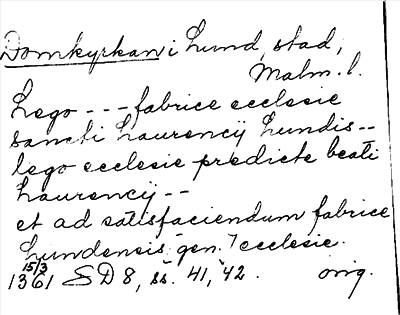 Domkyrkan i Lund, stad,
Malm. l.
Lego - - - fabrice ecclesie
sancti Laurencij Lundis - -
lego ecclesie predicte beati
Laurencij - -
et ad satisfaciendum fabrice
Lundensis gen. 7 ecclesie.
15/3
1361 SD 8, ss. 41, 42. orig.